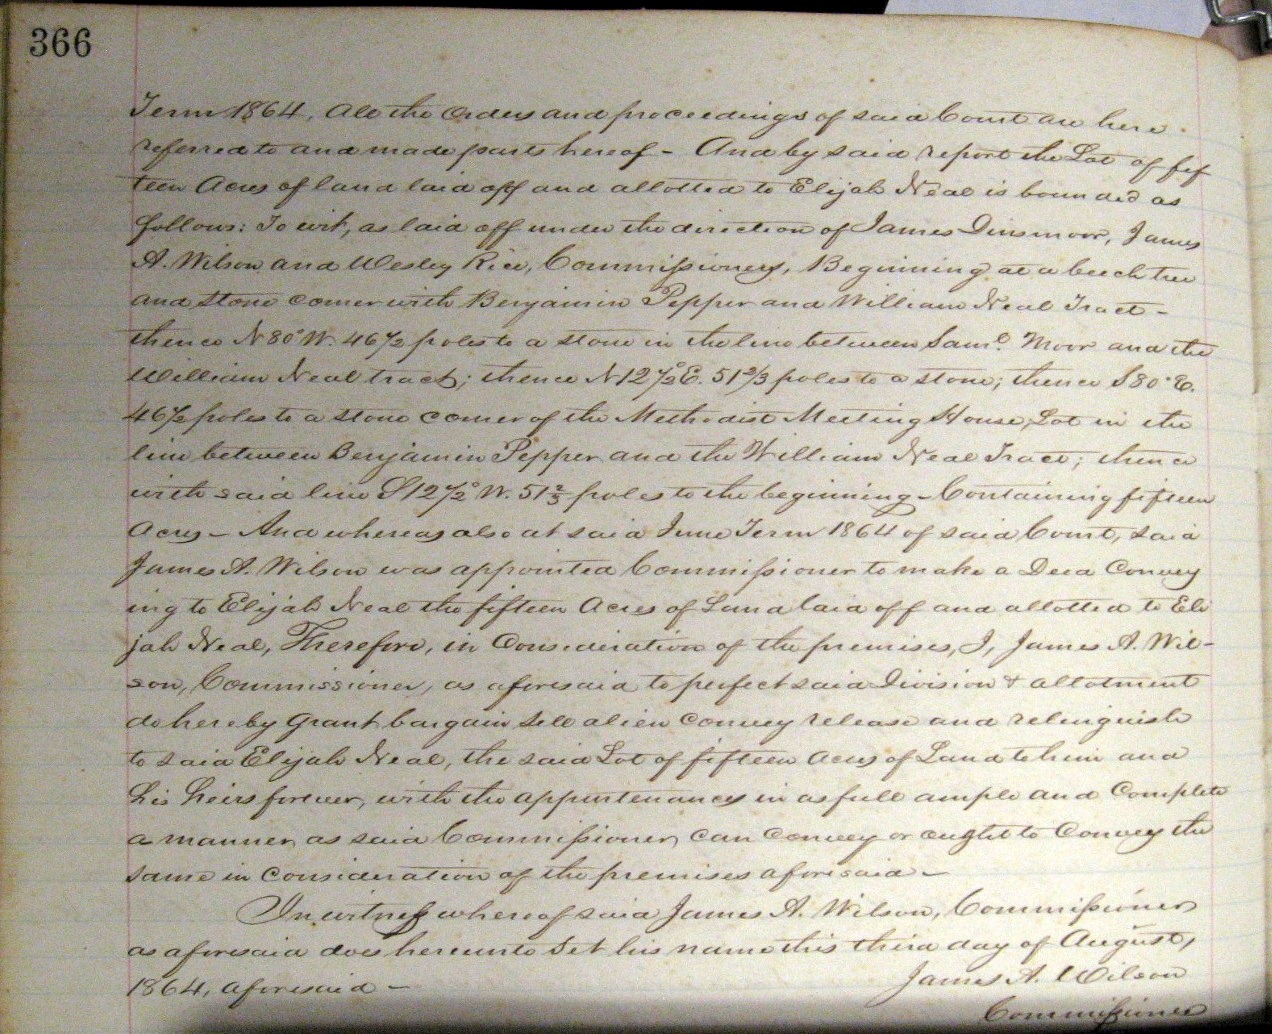 366
Term 1864, All the Orders and proceedings of said Court are here
referred to and made parts hereof - And by said report the Lot of fif
teen Acres of land laid off and allotted to Elijah Neal is bounded as
follows: To wit, as laid off under the direction of James Dinsmoor, James
A. Wilson and Wesley Rice, Commissioners, Beginning at a beech tree
and stone corner with Benjamin Pepper and William Neal Tract -
thence N 80° W. 46 1/2 poles to a stone in the line between Saml. Moor and the
William Neal tract; thence N 12 1/2° E. 51 2/3 poles to a stone; thence S 80° E.
46 1/2 poles to a stone corner of the Methodist Meeting House Lot in the
line between Benjamin Pepper and the William Neal Tract; thence
with said line S 12 1/2° W. 51 2/3 poles to the beginning - Containing fifteen
Acres - And whereas also at said June Term 1864 of said Court, said
James A. Wilson was appointed Commissioner to make a Deed Convey
ing to Elijah Neal the fifteen Acres of Land laid off and allotted to Eli
jah Neal, Therefore, in Consideration of the premises, I, James A. Wil-
son, Commissioner, as aforesaid to perfect said Division & allotment
do hereby Grant bargain Sell alien Convey release and relinquish
to said Elijah Neal, the said Lot of fifteen Acres of Land to him and
his heirs forever, with the appurtenances in as full ample and Complete
a manner, as said Commissioner, can Convey or ought to Convey the
same in consideration of the premises aforesaid -
In witness whereof said James A. Wilson, Commissioner
as aforesaid does hereunto Set his name this third day of August,
1864, aforesaid - James A. Wilson
Commissioner